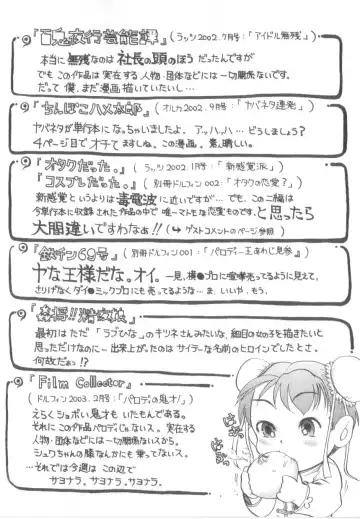 ⑨『百鬼夜行芸能譚』(ラッツ2002.7月号:「アイドル無残」)
本当に無残なのは社長の頭のほうだったんですが
でもこの作品は実在する人物・団体などには一切関係ないです。
だって僕、まだ漫画描いていたいし…
⑨『ちんぽこハメ太郎』(オルカ2002.9月号:「ヤバネタ連発」)
ヤバネタが単行本になっちゃいましたよ。アッハッハ…どうしましょう?
4ページ目でオチてますしね、この漫画。素晴しい。
⑨『オタクだった。』(ラッツ2002.1月号:「新感覚派」)
『コスプレだった。』(別冊ドルフィン002:「オタクの恋愛?」)
新感覚というよりは毒電波に近いですが…でも、この二編は
今単行本に収録された作品の中で唯一マトモな恋愛ものです。と思ったら
大間違いですわなぁ!!(↳ゲストコメントのページ参照)
⑨『鉄チン69号』(別冊ドルフィン001:「パロデー王あわじ見参」)
ヤな王様だな。オイ。一見、横●プロに喧嘩売ってるように見えて、
さりげなくダイ●ミックプロにも売ってるような…ま、いいや、もう。
最初はただ「ラブひな」のキツネさんみたいな、細目の女の子を描きたいと
思っただけなのに…出来上がったのはサイテーな名前のヒロインでしたとさ。
何故だぁっ!?
⑨『Film Collector』
(ドルフィン2003.2月号:「パロデの鬼才!」)
えらくショボい鬼才もいたもんである。
それにこの作品パロデじゃないス。実在する
人物・団体などには一切関係ないスから。
シュワちゃんの膝なんかにも乗ってないス。
…それでは今週はこの辺で
サヨナラ、サヨナラ、サヨナラ。
はぐっ